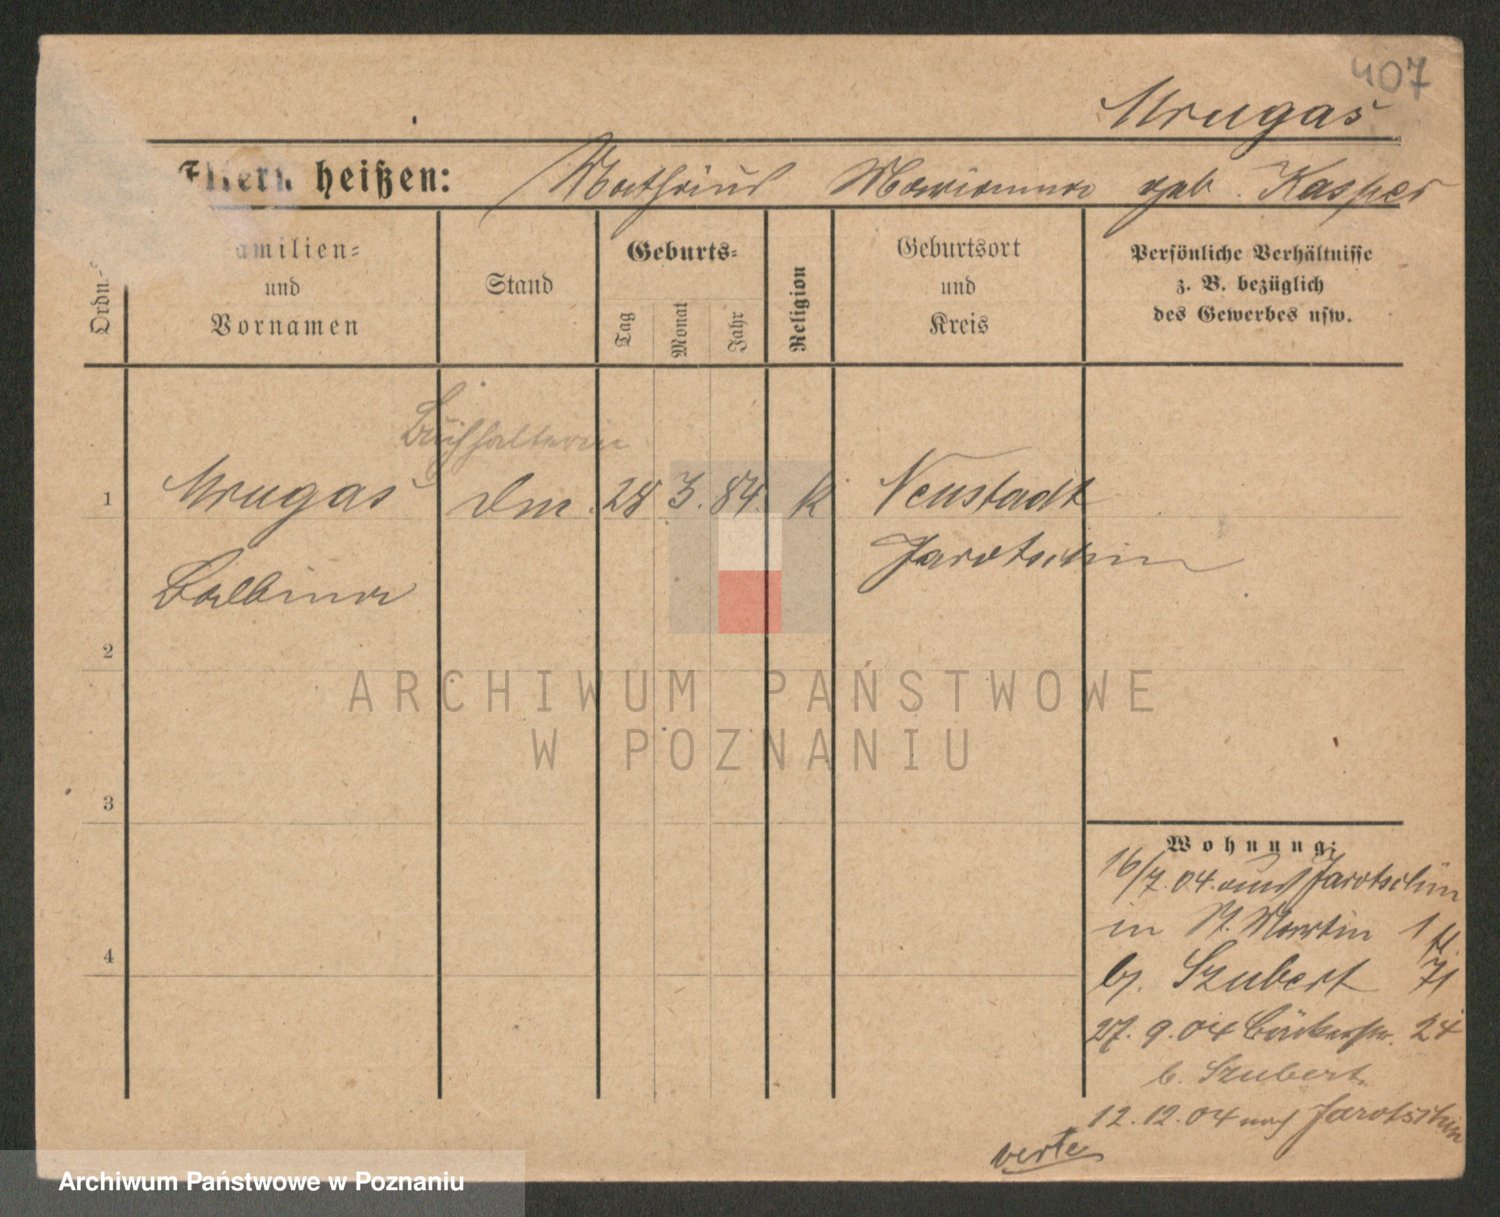 407
Mrugas
Eltern heißen: Mathäus Marianna geb. Kasper
Ordn.=
Familien=
und
Vornamen
Stand
Geburts=
Tag
Monat
Jahr
Religion
Geburtsort
und
Kreis
Persönliche Verhältnisse
z. B. bezüglich
des Gewerbes usw.
Buchhalterin
1 Mrugas 28 3. 84. k Neustadt
Jarotschin
Balbina
2
3
4
Wohnung:
16/7. 04. aus Jarotschin
in St. Martin
b. Szubert 71
27. 9. 04 Bäckerstr. 24
b. Szubert
12. 12. 04 nach Jarotschin
verte
ARCHIWUM PAŃSTWOWE
W POZNANIU
Archiwum Państwowe w Poznaniu